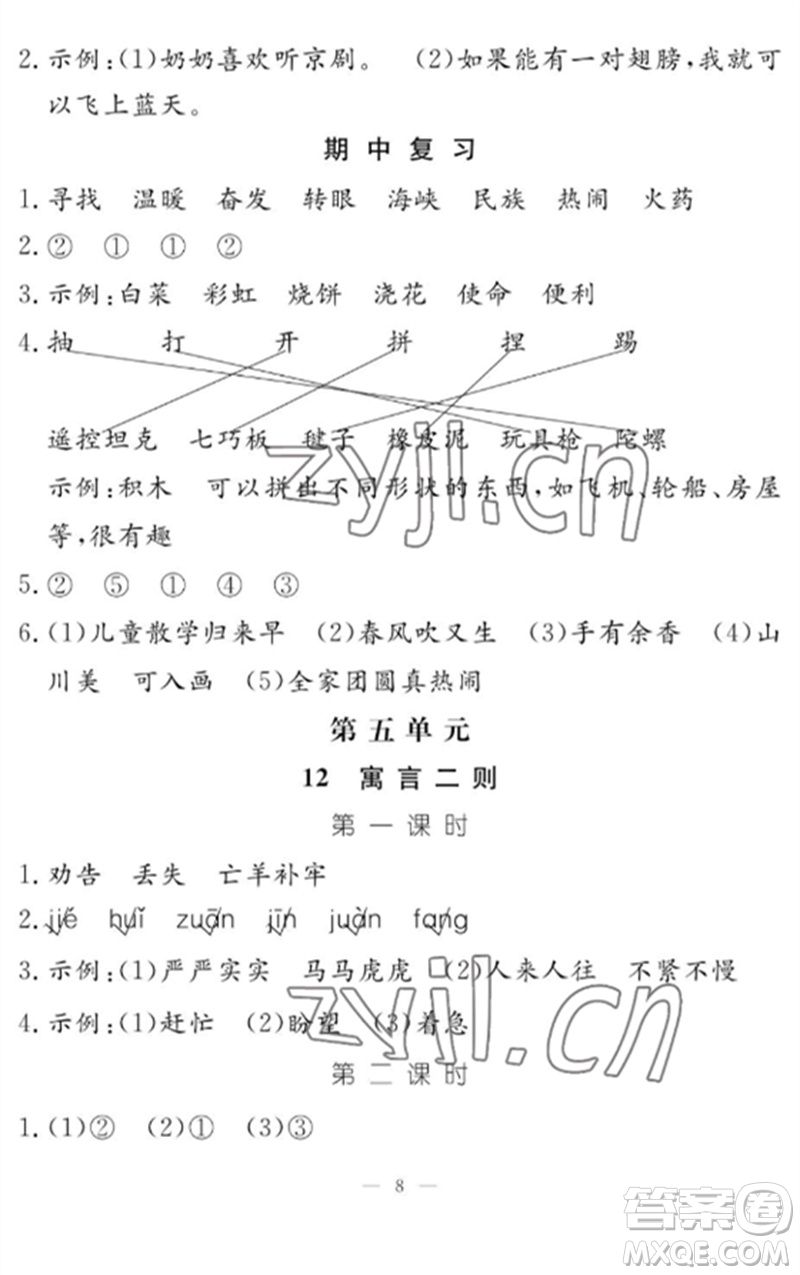 2. 示例:(1)奶奶喜欢听京剧。 (2)如果能有一对翅膀,我就可
以飞上蓝天。
期中复习
1. 寻找 温暖 奋发 转眼 海峡 民族 热闹 火药
2. ② ① ① ②
3. 示例:白菜 彩虹 烧饼 浇花 使命 便利
4. 抽 打 开 拼 捏 踢
遥控坦克 七巧板 毽子 橡皮泥 玩具枪 陀螺
示例:积木 可以拼出不同形状的东西,如飞机、轮船、房屋
等,很有趣
5. ② ⑤ ① ④ ③
6. (1)儿童散学归来早 (2)春风吹又生 (3)手有余香 (4)山
川美 可入画 (5)全家团圆真热闹
第五单元
12 寓言二则
第一课时
1. 劝告 丢失 亡羊补牢
2. jiē huǐ zuān jīn juàn fang
3. 示例:(1)严严实实 马马虎虎 (2)人来人往 不紧不慢
4. 示例:(1)赶忙 (2)盼望 (3)着急
第二课时
1. (1)② (2)① (3)③
— 8 —
zyjl.cn
zyjl.cn
答案圈
MXQE.COM